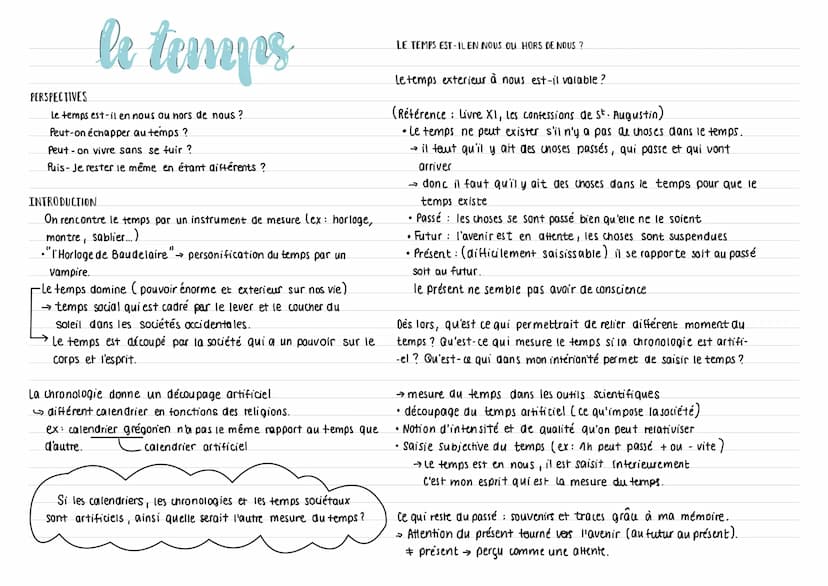 le temps
PERSPECTIVES
le temps est-il en nous ou hors de nous ?
Peut-on échapper au temps ?
Peut-on vivre sans se fuir ?
Puis-Je rester le même en étant différents ?
INTRODUCTION
On rencontre le temps par un instrument de mesure (ex : horloge,
montre, sablier...)
• "l'Horloge de Baudelaire" → personification du temps par un
vampire.
Le temps domine ( pouvoir énorme et exterieur sur nos vie)
→ temps social qui est cadré par le lever et le coucher du
soleil dans les sociétés occidentales.
Le temps est découpé par la société qui a un pouvoir sur le
corps et l'esprit.
La chronologie donne un découpage artificiel
↪ différent calendrier en fonctions des religions.
ex : calendrier grégorien n'a pas le même rapport au temps que
d'autre. calendrier artificiel
Si les calendriers, les chronologies et les temps sociétaux
sont artificiels, ainsi quelle serait l'autre mesure du temps ?
LE TEMPS EST-IL EN NOUS OU HORS DE NOUS ?
Le temps exterieur à nous est-il valable ?
(Référence : Livre XI, les confessions de St. Augustin)
• Le temps ne peut exister s'il n'y a pas de choses dans le temps.
→ il faut qu'il y ait des choses passés, qui passe et qui vont
arriver
→ donc il faut qu'il y ait des choses dans le temps pour que le
temps existe
• Passé : les choses se sont passé bien qu'elle ne le soient
• Futur : l'avenir est en attente, les choses sont suspendues
• Présent : (difficilement saisissable) il se rapporte soit au passé
soit au futur.
le présent ne semble pas avoir de conscience
Dés lors, qu'est ce qui permettrait de relier différent moment du
temps ? Qu'est-ce qui mesure le temps si la chronologie est artifi-
-el ? Qu'est-ce qui dans mon intériorité permet de saisir le temps ?
→ mesure du temps dans les outils scientifiques
• découpage du temps artificiel ( ce qu'impose la société)
• Notion d'intensité et de qualité qu'on peut relativiser
• Saisie subjective du temps (ex : 1h peut passé + ou - vite )
→ Le temps est en nous, il est saisit interieurement
C'est mon esprit qui est la mesure du temps.
Ce qui reste du passé : souvenirs et traces grâu à ma mémoire.
→ Attention du présent tourné vers l'avenir (au futur au présent).
≠ présent → perçu comme une attente.